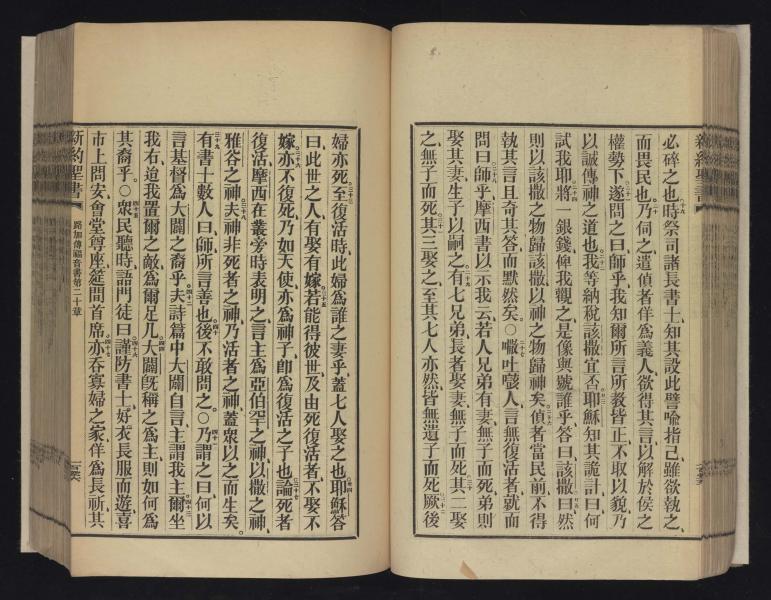 必碎之也時祭司諸長書士知其設此譬喻指己雖欲執之
而畏民也乃伺之遣偵者佯爲義人欲得其言以解於侯之
權勢下遂問之曰師乎我知爾所言所教皆正不取以貌乃
以誠傳神之道也我等納稅該撒宜否耶穌知其詭計曰何
試我耶將一銀錢俾我觀之是像與號誰乎答曰該撒曰然
則以該撒之物歸該撒以神之物歸神矣偵者當民前不得
執其言且奇其答而默然矣○㘔吐㗱人言無復活者就而
問曰師乎摩西書以示我云若人兄弟有妻無子而死弟則
娶其妻生子以嗣之有七兄弟長者娶妻無子而死其二娶
之無子而死其三娶之至其七人亦然皆無遺子而死厥後
婦亦死至復活時此婦爲誰之妻乎蓋七人娶之也耶穌答
曰此世之人有娶有嫁若能得彼世及由死復活者不娶不
嫁亦不復死乃如天使亦爲神子卽爲復活之子也論死者
復活摩西在叢旁時表明之言主爲亞伯罕之神以撒之神
雅谷之神夫神非死者之神乃活者之神蓋衆以之而生矣
有書士數人曰師所言善也後不敢問之○乃謂之曰何以
言基督爲大闢之裔乎夫詩篇中大闢自言主謂我主爾坐
我右迨我置爾之敵爲爾足几大闢旣稱之爲主則如何爲
其裔乎○衆民聽時語門徒曰謹防書士好衣長服而遊喜
市上問安會堂尊座筵間首席亦吞寡婦之家佯爲長祈其
新約聖書
路加傳福音書第二十章
新約聖書